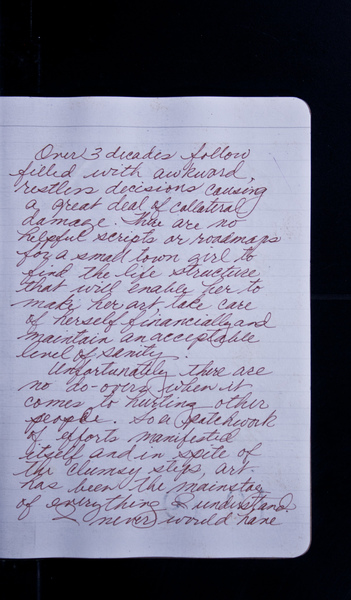 Over 3 decades follow
filled with awkward,
restless decisions causing
a great deal of collateral
damage. There are no
helpful scripts or roadmaps
for a small town girl to
find the life structure
that will enable her to
make her art, take care
of herself financially and
maintain an acceptable
level of sanity.
Unfortunately there are
no do-overs when it
comes to hurting other
people. So a patchwork
of efforts manifested
itself and in spite of
the clumsy steps, art
has been the mainstay
of everything I understand.
never would have